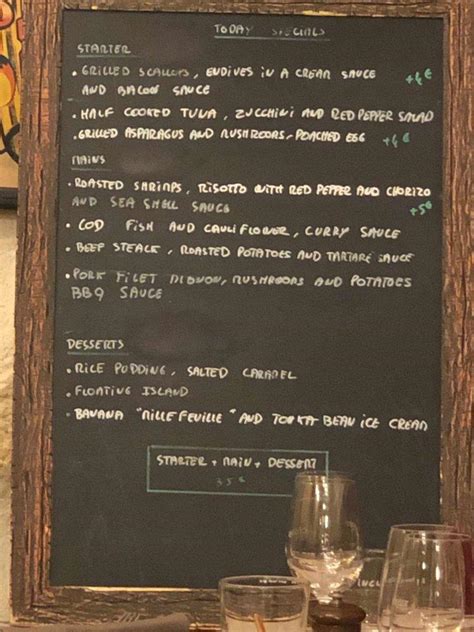 TODAY SPECIALS
STARTER
• GRILLED SCALLOPS, ENDIVES IN A CREAM SAUCE
AND BACON SAUCE +4€
• HALF COOKED TUNA, ZUCCHINI AND RED PEPPER SALAD
• GRILLED ASPARAGUS AND MUSHROOMS, POACHED EGG +4€
MAINS
• ROASTED SHRIMPS, RISOTTO WITH RED PEPPER AND CHORIZO
AND SEA SHELL SAUCE +5€
• COD FISH AND CAULIFLOWER, CURRY SAUCE
• BEEF STEACK, ROASTED POTATOES AND TARTARE SAUCE
• PORK FILET MIGNON, MUSHROOMS AND POTATOES
BBQ SAUCE
DESSERTS
• RICE PUDDING, SALTED CARAMEL
• FLOATING ISLAND
• BANANA "MILLEFEUILLE" AND TONKA BEAN ICE CREAM
STARTER + MAIN + DESSERT
35€